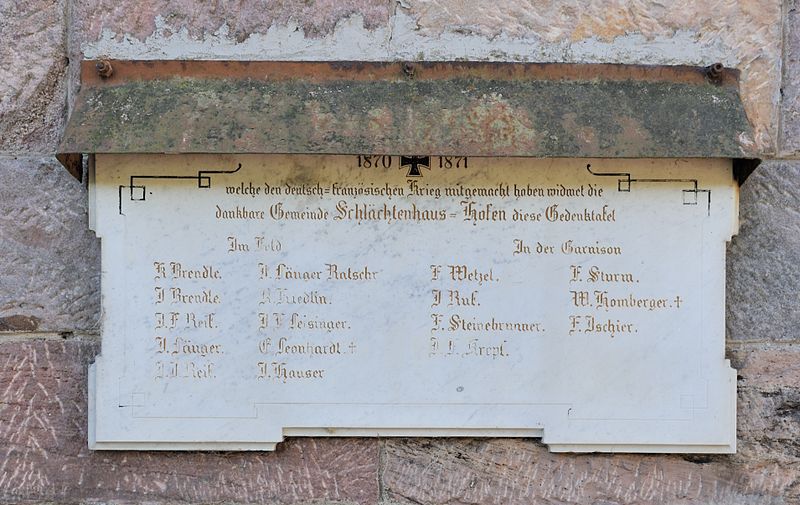 1870 1871
welche den deutsch=französischen Krieg mitgemacht haben widmet die
dankbare Gemeinde Schlächtenhaus=Hofen diese Gedenktafel
Im Feld
K Brendle.
J Brendle.
J. F Reif.
J. Länger.
J. J. Reif.
J. Länger Ratschr
R. Riedlin.
J F Leisinger.
E. Leonhardt. †
J. Hauser
In der Garnison
F Wetzel.
J Ruf.
F. Steinebrunner.
J. F. Kropf.
F. Sturm.
W. Homberger. †
F. Ischier.